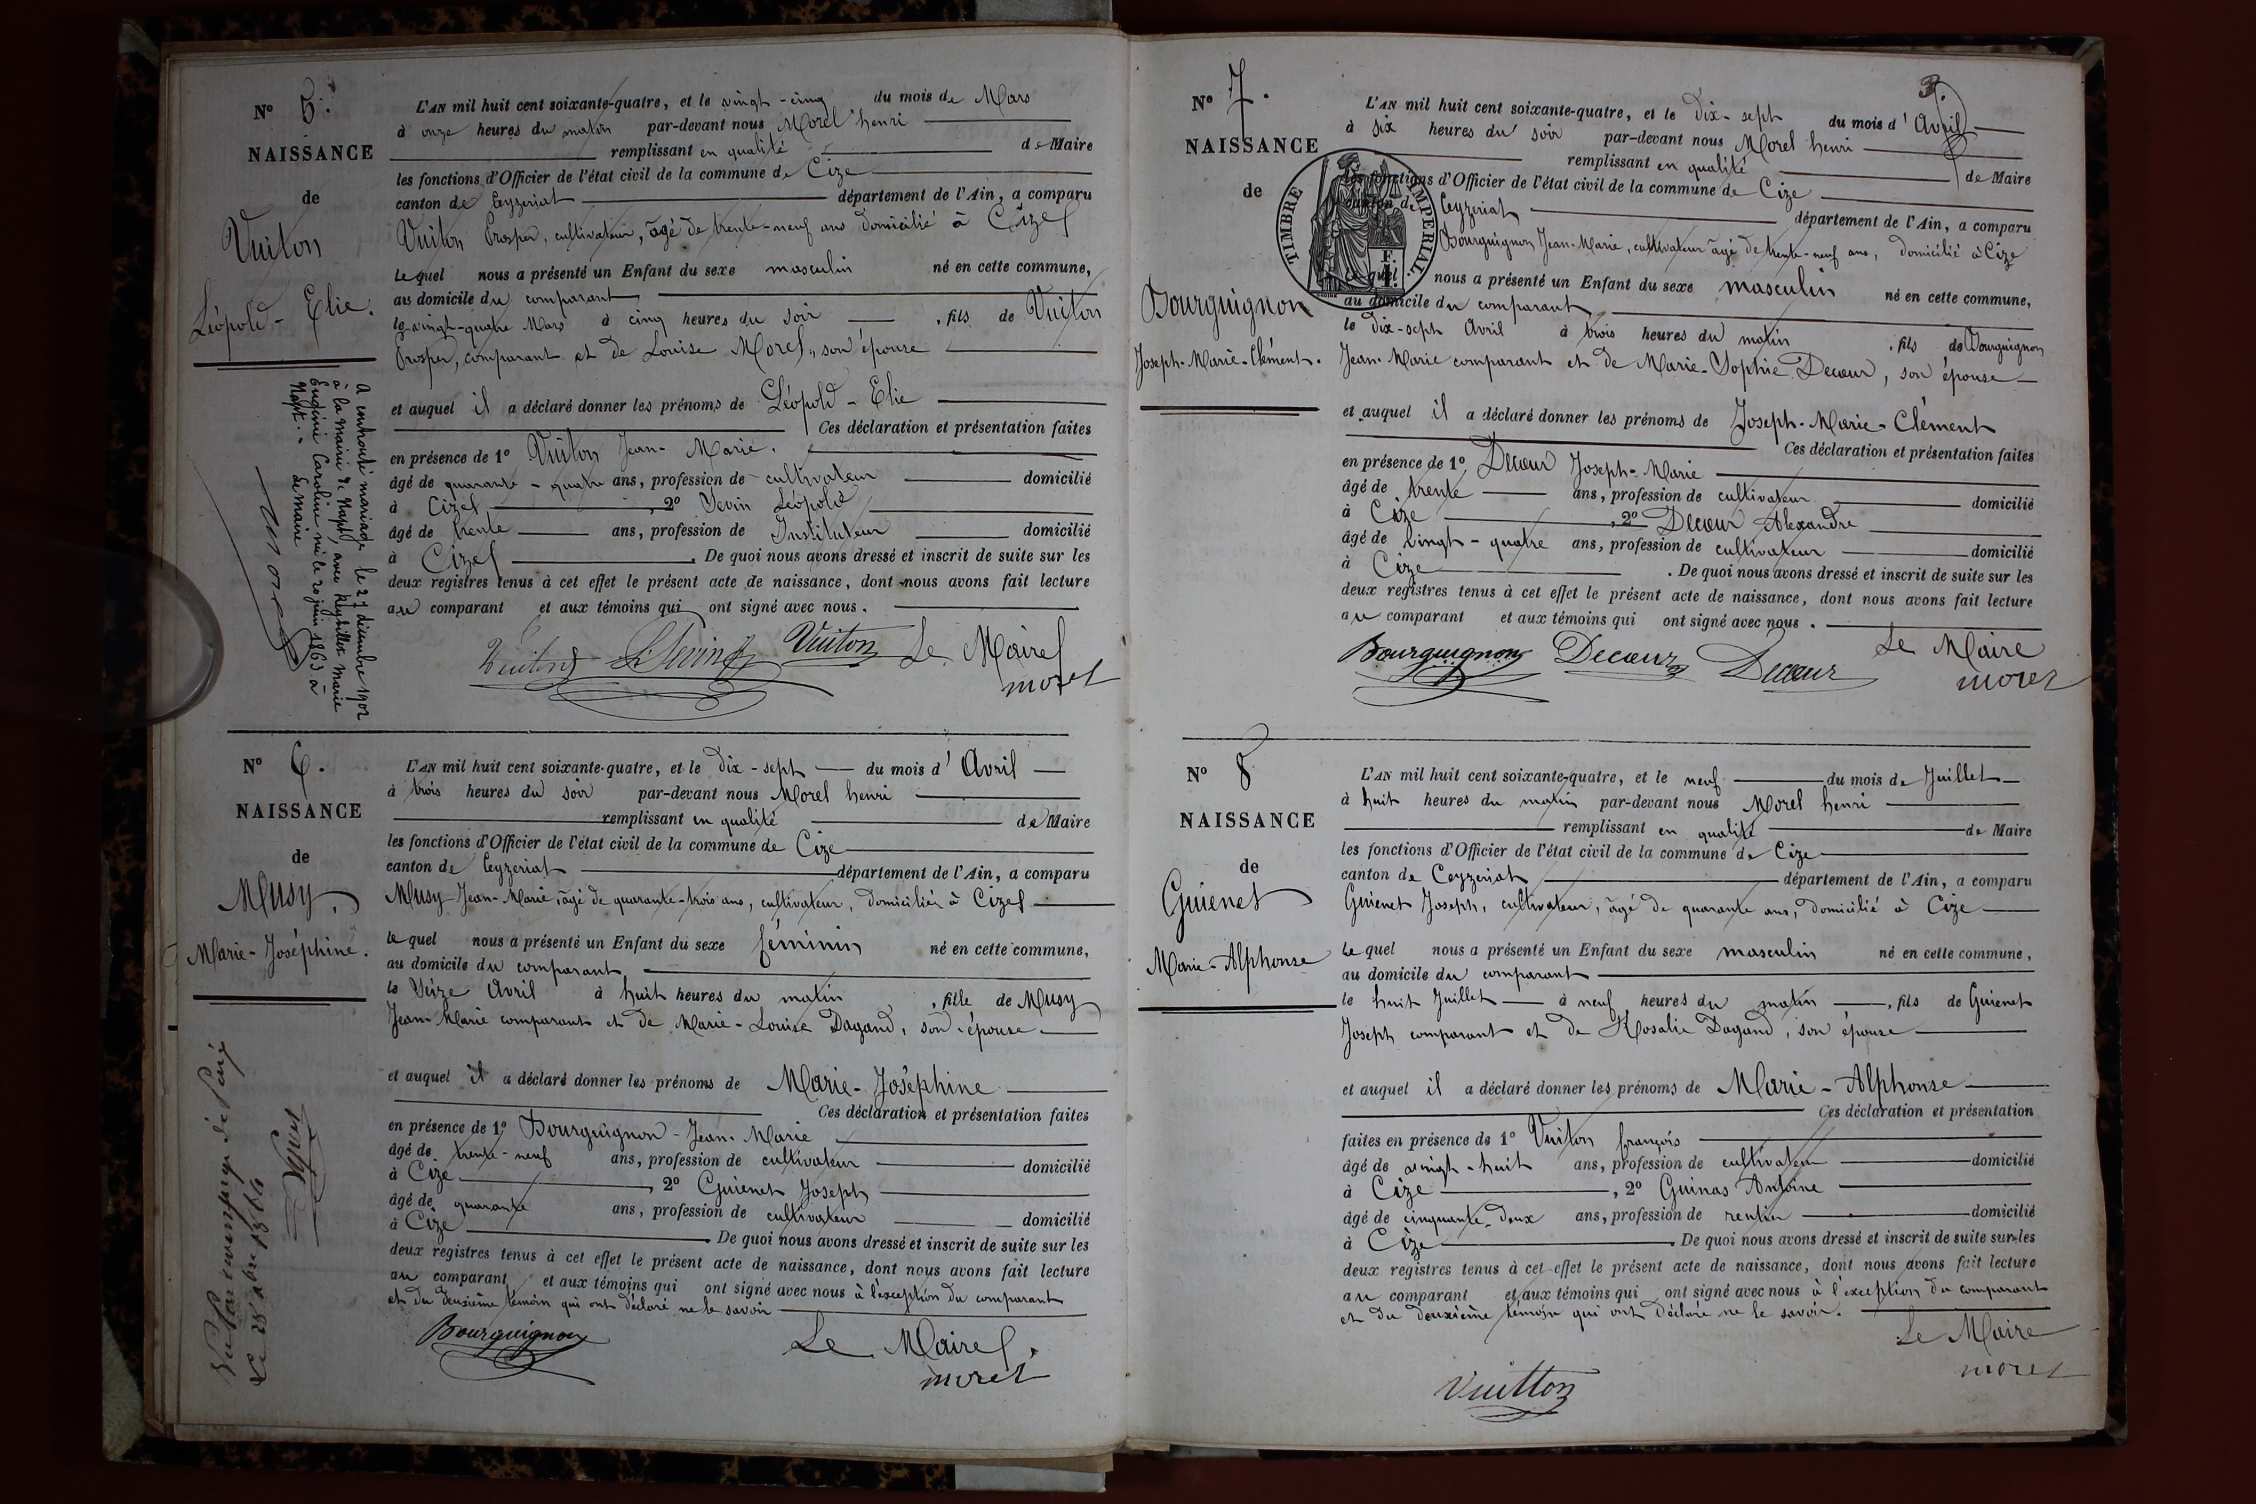 N° 5.
NAISSANCE
de
Vuiton
Léopold - Elie.
L'AN mil huit cent soixante-quatre, et le vingt-cinq du mois de Mars
à onze heures du matin par-devant nous Morel henri
remplissant en qualité de Maire
les fonctions d'Officier de l'état civil de la commune de Cize
canton de Ceyzeriat département de l'Ain, a comparu
Vuiton Prosper, cultivateur, âgé de trente-neuf ans domicilié à Cize
lequel nous a présenté un Enfant du sexe masculin né en cette commune,
au domicile du comparant
le vingt-quatre Mars à cinq heures du soir , fils de Vuiton
Prosper, comparant et de Louise Morel, son épouse
et auquel il a déclaré donner les prénoms de Léopold - Elie
Ces déclaration et présentation faites
en présence de 1° Vuiton Jean-Marie.
âgé de quarante-quatre ans, profession de cultivateur domicilié
à Cize , 2° Sevin Léopold
âgé de trente ans, profession de Instituteur domicilié
à Cize . De quoi nous avons dressé et inscrit de suite sur les
deux registres tenus à cet effet le présent acte de naissance, dont nous avons fait lecture
au comparant et aux témoins qui ont signé avec nous.
Vuiton L. Sevin Vuiton Le Maire
morel
A contracté mariage le 27 décembre 1902
à la mairie de Napt, avec Reybillet Marie
Eugénie Caroline née le 20 juin 1863 à
Napt. - Le Maire
morel
N° 6.
NAISSANCE
de
Musy,
Marie-Joséphine.
L'AN mil huit cent soixante-quatre, et le dix-sept du mois d'Avril
à trois heures du soir par-devant nous Morel henri
remplissant en qualité de Maire
les fonctions d'Officier de l'état civil de la commune de Cize
canton de Ceyzeriat département de l'Ain, a comparu
Musy Jean-Marie, âgé de quarante-trois ans, cultivateur, domicilié à Cize
lequel nous a présenté un Enfant du sexe féminin né en cette commune,
au domicile du comparant
le Seize Avril à huit heures du matin , fille de Musy
Jean-Marie comparant et de Marie-Louise Dagand, son épouse
et auquel il a déclaré donner les prénoms de Marie-Joséphine
Ces déclaration et présentation faites
en présence de 1° Bourguignon Jean-Marie
âgé de trente-neuf ans, profession de cultivateur domicilié
à Cize , 2° Guienet Joseph
âgé de quarante ans, profession de cultivateur domicilié
à Cize . De quoi nous avons dressé et inscrit de suite sur les
deux registres tenus à cet effet le présent acte de naissance, dont nous avons fait lecture
au comparant et aux témoins qui ont signé avec nous à l'exception du comparant
et du deuxième témoin qui ont déclaré ne le savoir
Bourguignon Le Maire
morel
3.
N° 7.
NAISSANCE
de
Bourguignon
Joseph-Marie-Clément.
TIMBRE IMPERIAL.
L'AN mil huit cent soixante-quatre, et le dix-sept du mois d'Avril
à six heures du soir par-devant nous Morel henri
remplissant en qualité de Maire
les fonctions d'Officier de l'état civil de la commune de Cize
canton de Ceyzeriat département de l'Ain, a comparu
Bourguignon Jean-Marie, cultivateur âgé de trente-neuf ans, domicilié à Cize
lequel nous a présenté un Enfant du sexe masculin né en cette commune,
au domicile du comparant
le dix-sept Avril à trois heures du matin , fils de Bourguignon
Jean-Marie comparant et de Marie-Sophie Decœur, son épouse
et auquel il a déclaré donner les prénoms de Joseph-Marie-Clément
Ces déclaration et présentation faites
en présence de 1° Decœur Joseph-Marie
âgé de trente ans, profession de cultivateur domicilié
à Cize , 2° Decœur Alexandre
âgé de vingt-quatre ans, profession de cultivateur domicilié
à Cize . De quoi nous avons dressé et inscrit de suite sur les
deux registres tenus à cet effet le présent acte de naissance, dont nous avons fait lecture
au comparant et aux témoins qui ont signé avec nous.
Bourguignon Decœur Decœur Le Maire
morel
N° 8
NAISSANCE
de
Guienet
Marie-Alphonse
L'AN mil huit cent soixante-quatre, et le neuf du mois de Juillet
à huit heures du matin par-devant nous Morel henri
remplissant en qualité de Maire
les fonctions d'Officier de l'état civil de la commune de Cize
canton de Ceyzeriat département de l'Ain, a comparu
Guienet Joseph, cultivateur, âgé de quarante ans, domicilié à Cize
lequel nous a présenté un Enfant du sexe masculin né en cette commune,
au domicile du comparant
le huit Juillet à neuf heures du matin , fils de Guienet
Joseph comparant et de Rosalie Dagand, son épouse
et auquel il a déclaré donner les prénoms de Marie-Alphonse
Ces déclaration et présentation
faites en présence de 1° Vuiton françois
âgé de vingt-huit ans, profession de cultivateur domicilié
à Cize , 2° Guinas Antoine
âgé de cinquante-deux ans, profession de rentier domicilié
à Cize . De quoi nous avons dressé et inscrit de suite sur les
deux registres tenus à cet effet le présent acte de naissance, dont nous avons fait lecture
au comparant et aux témoins qui ont signé avec nous à l'exception du comparant
et du deuxième témoin qui ont déclaré ne le savoir.
Le Maire
morel
Vuitton